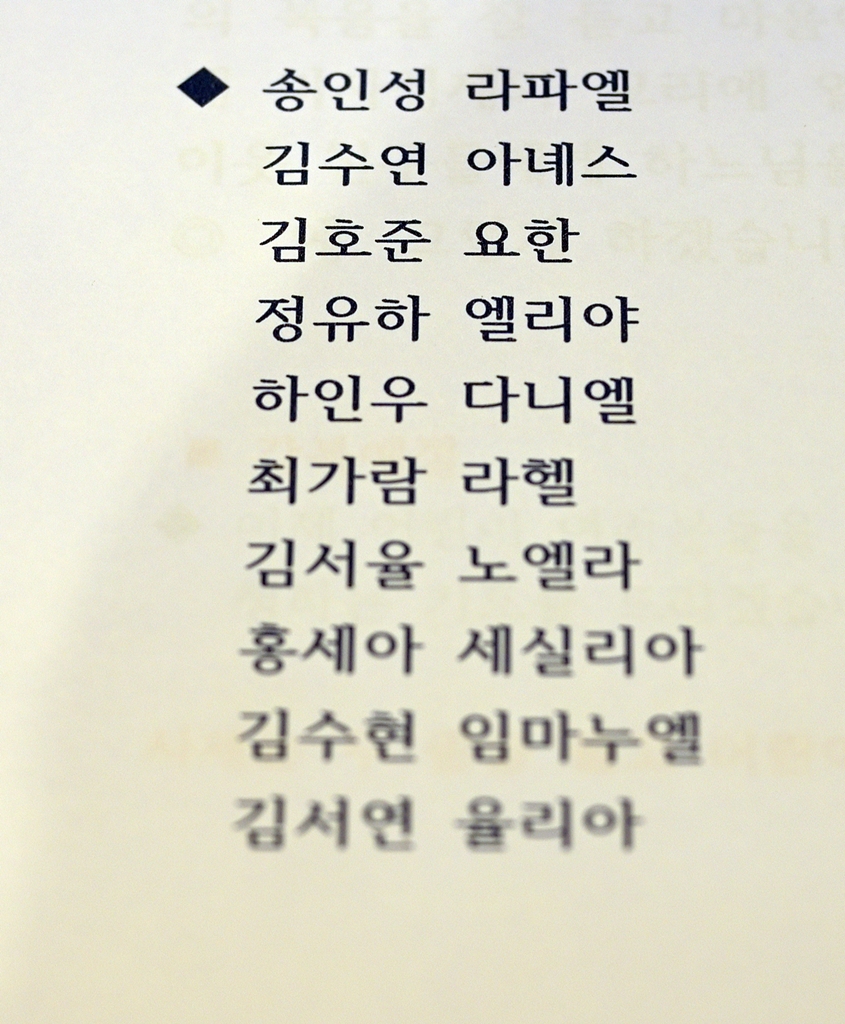 ◆ 송인성 라파엘
김수연 아녜스
김호준 요한
정유하 엘리야
하인우 다니엘
최가람 라헬
김서율 노엘라
홍세아 세실리아
김수현 임마누엘
김서연 율리아